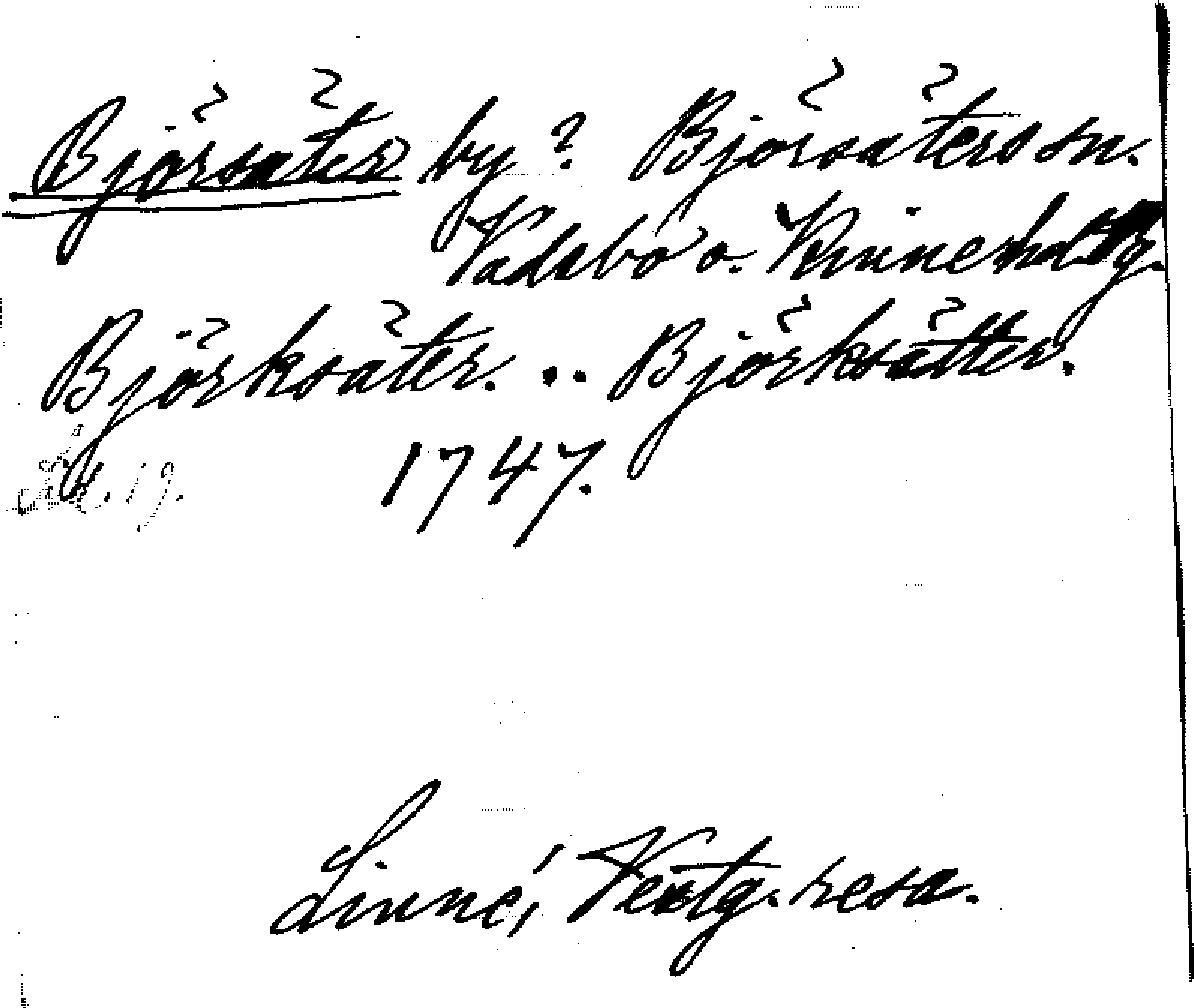 Björsäter by? Björsäters sn.
Vadsbo o. Kinne
Björksäter. .. Björksätter.
19. 1747.
Linné, Vestg. resa.